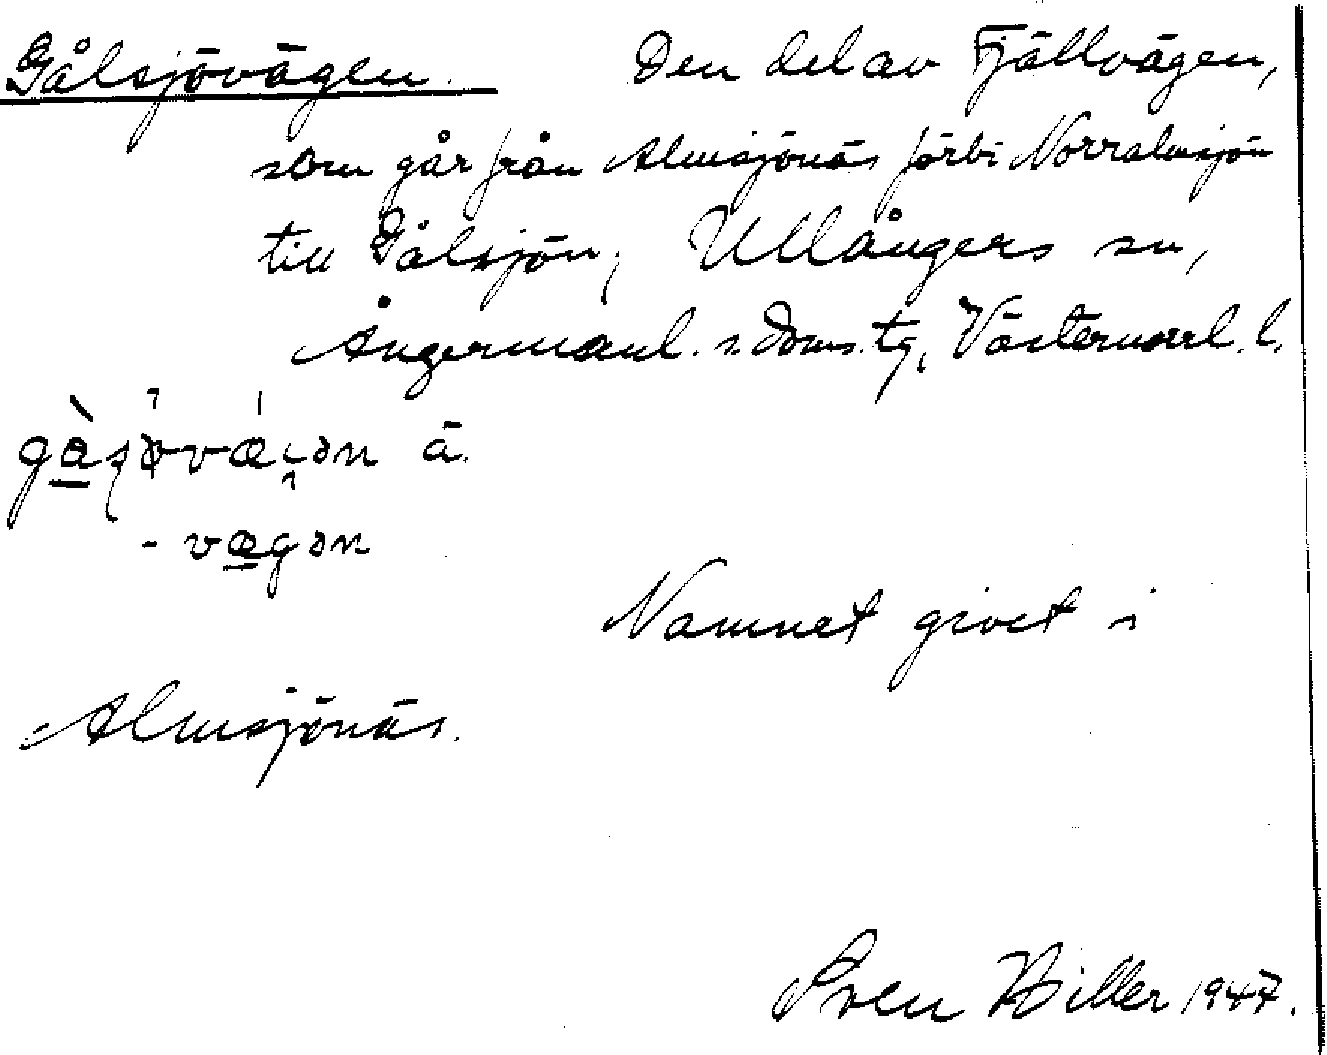 Gålsjövägen. Den del av Fjällvägen,
som går från Almsjönäs förbi Norralmsjön
till Gålsjön, Ullångers sn,
Ångermanl. s. doms. tg, Västernorrl. l.
å
- vægən
Namnet givet i
Almsjönäs.
Sven Hiller 1947.